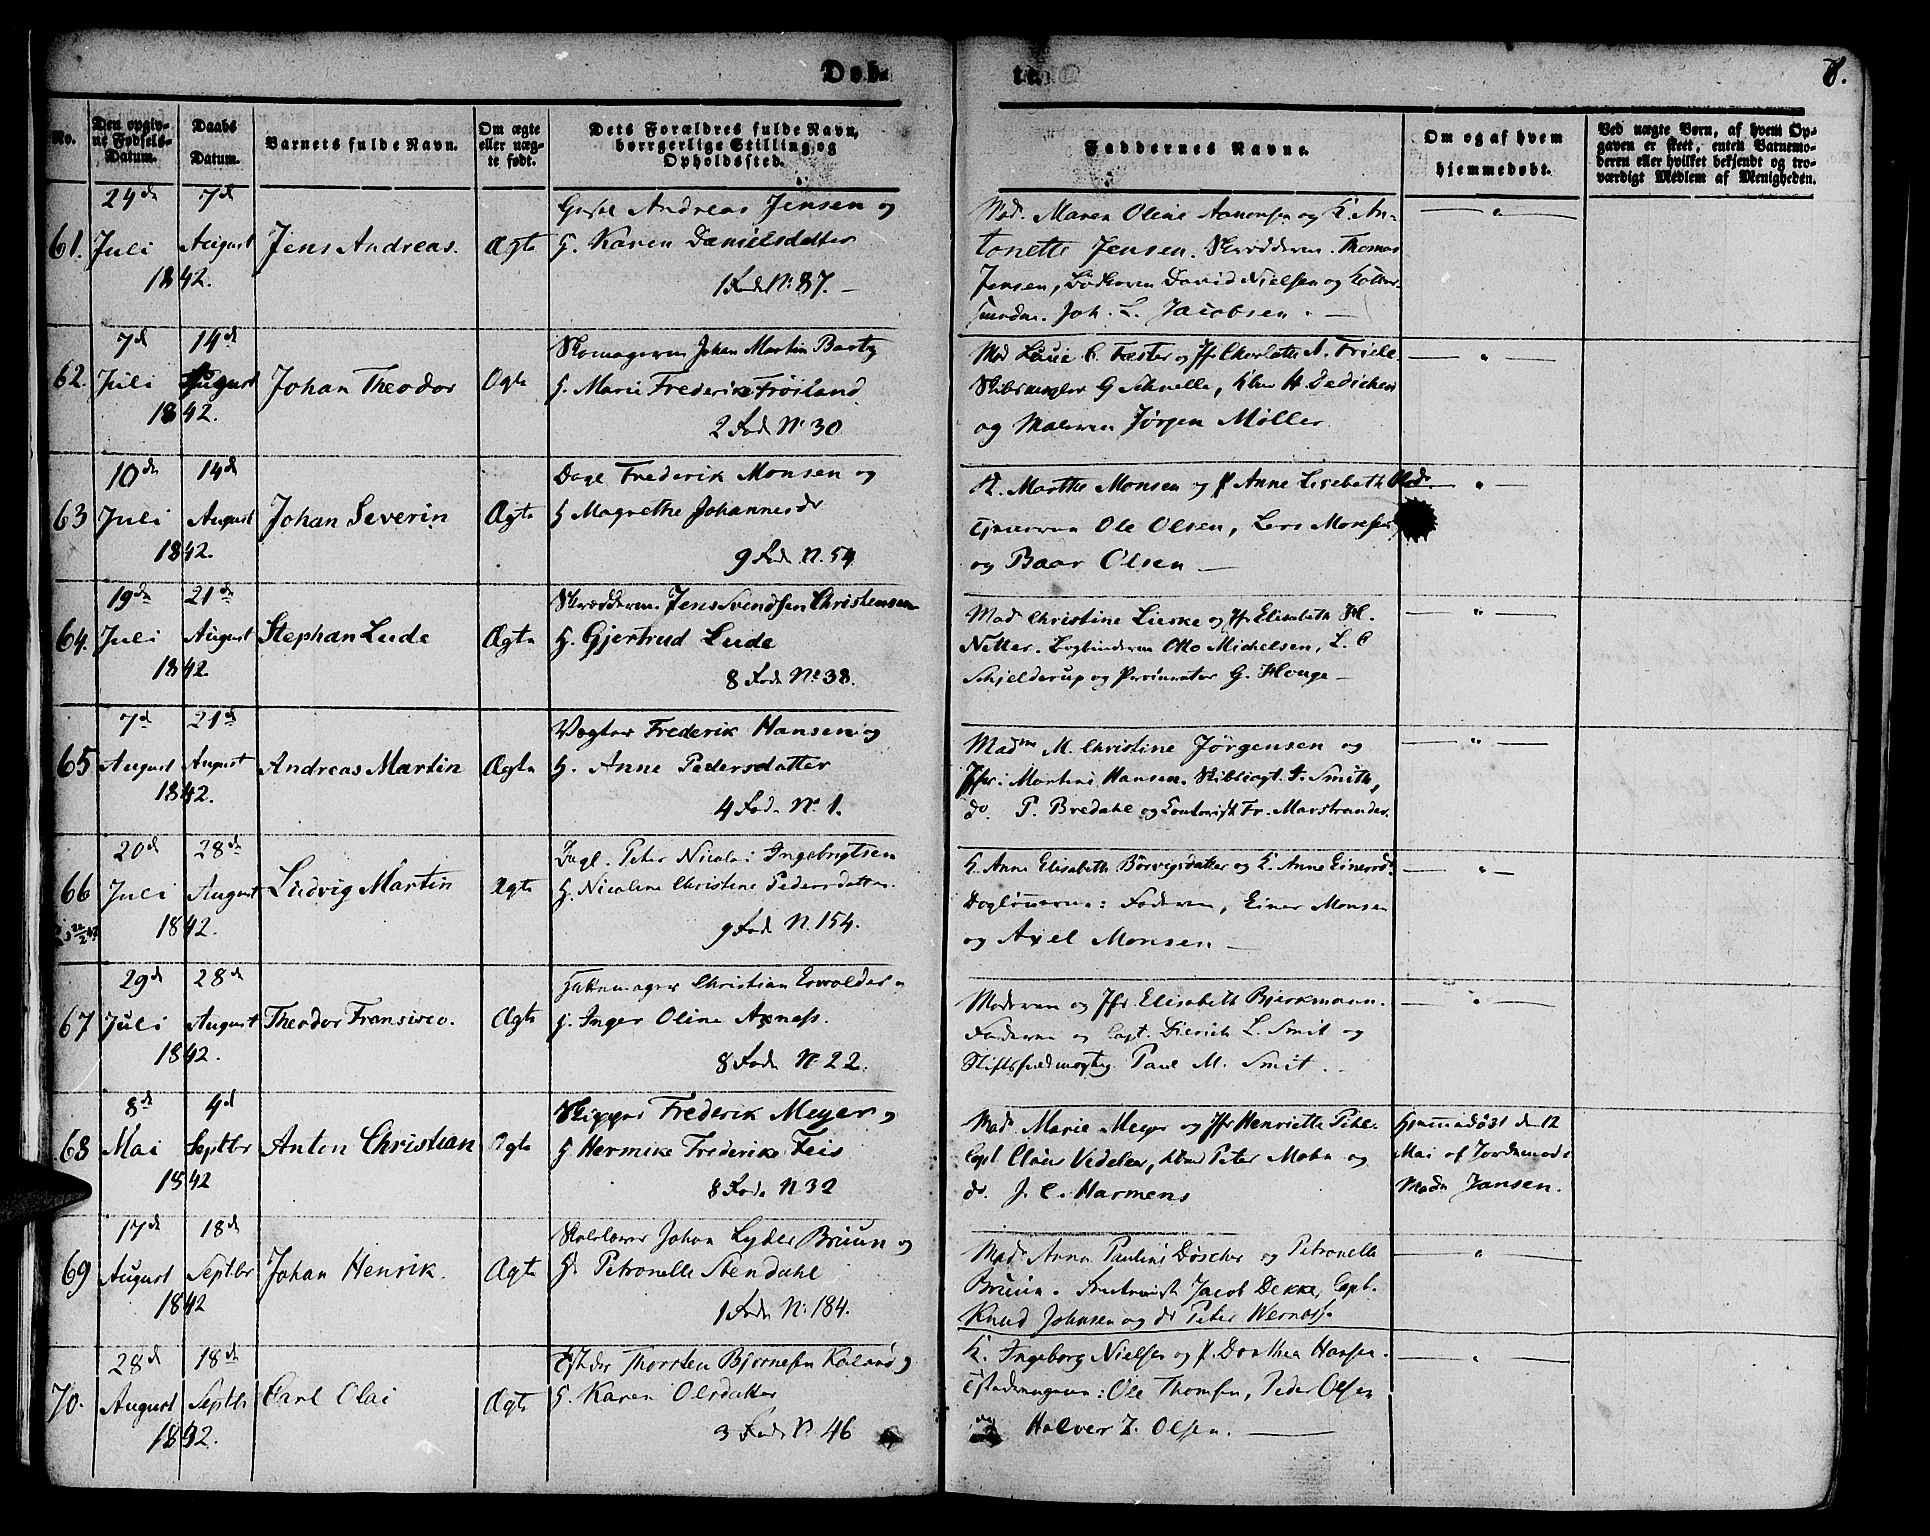 Døb-
te.
8.
No.
Den opgiv-
ne Fødsels-
Datum.
Daabs
Datum.
Barnets fulde Navn.
Om ægte
eller uæg-
te født.
Dets Forældres fulde Navn,
borrgerlige Stilling og
Opholdssted.
Faddernes Navne.
Om og af hvem
hjemmedøbt.
Ved uægte Børn, af hvem Op-
gaven er skeet, enten Barnemo-
deren eller hvilket bekjendt og tro-
værdigt Medlem af Menigheden.
61.
24de
Juli
1842.
7de
August
Jens Andreas.
Ægte
Andreas Jensen og
H. Karen Danielsdatter
1 Rode No 87.
Mad. Maren Oline Aanonsen og K. An-
tonette Jensen. Skrædderen Thomas
Jensen, David Nielsen og
Joh. L. Jacobsen.
62.
7de
Juli
1842.
14de
August
Johan Theodor
Ægte
Skomageren Johan Martin Bartz
H. Marie Frederike Frøiland
2 Rode No 30
Mad C. Fæster og Jfr Charlotte A. Friele
G Schnelle, H. Dedichen
og Maleren Jørgen Møller
63
10de
Juli
1842.
14de
August
Johan Severin
Ægte
Dagl Frederik Monsen og
H Magrethe Johannesdr
9 Rode N. 54
K. Marthe Monsen og P Anne Lisebeth Olsdr
Tjenerne Ole Olsen, Lars Monsen
og Baar Olsen
64.
19de
Juli
1842.
21de
August
Stephan Lude
Ægte
Skrædderen Jens Svendsen Christensen
H. Gjertrud Lude
8 Rode No 38.
Mad Christine Lierke og Jfr Elisabeth H.
Netter. Bogbinderen Otto Michelsen, L. C
Schjelderup og Procurator G. Houge
65
7de
August
1842.
21de
August
Andreas Martin
Ægte
Vægter Frederik Hansen og
H. Anne Pedersdatter
4 Rode No 1.
Madme M. Christine Jørgensen og
Jfr: Martine Hansen. Smith,
do. P. Bredahl og Contorist Fr. Marstrander.
66
20de
Juli
1842.
28de
August
Ludvig Martin
Ægte
Dagl. Peter Nicolai Ingebrigtsen
H. Nicoline Christine Pedersdatter
9 Rode N. 154.
K. Anne Elisabeth Børvigsdatter og K. Anne Einersdr
Dagleierne: Faderen, Einer Monsen
og Axel Monsen
67
29de
Juli
1842.
28de
August
Theodor Fransisco.
Ægte
Hattemager Christian
H. Inger Oline Axness.
8 Rode No 22.
Moderen og Jfr Elisabeth Bjerkmann.
Faderen og Capt. Dierich L. Smit og
Stiftsfuldmægtig Paul M. Smit.
68
8de
Mai
1842
4de
Septbr
Anton Christian
Ægte
Skipper Frederik Meyer og
H Hermike Frederike Feis
8 Rode N 32
Mad. Marie Meyer og Jfr Henriette
Capt Claus Vedeler, Peter Mohn og
do. J. C. Harmens
Hjemmedøbt den 12
Mai af Jordemoder
Mada Jansen.
69
17de
August
1842
18de
Septbr
Johan Henrik.
Ægte
Skolelærer Johan Lyder Bruun og
H. Petronelle Stendahl
1 Rode No 184.
Mad. Anna Pauline Døscher og Petronelle
Bruun. Jacob Dekke, Capt.
Knud Johnsen og do Peter Wernøss.
70.
28de
August
1842.
18de
Septbr
Carl Olai
Ægte
Thorsten Bjørnesen
H. Karen Olsdatter
3 Rode No 46
K. Ingeborg Nielsen og P. Dorthea Hansen.
Ole Thomsen, Peder Olsen
og Halver T. Olsen.